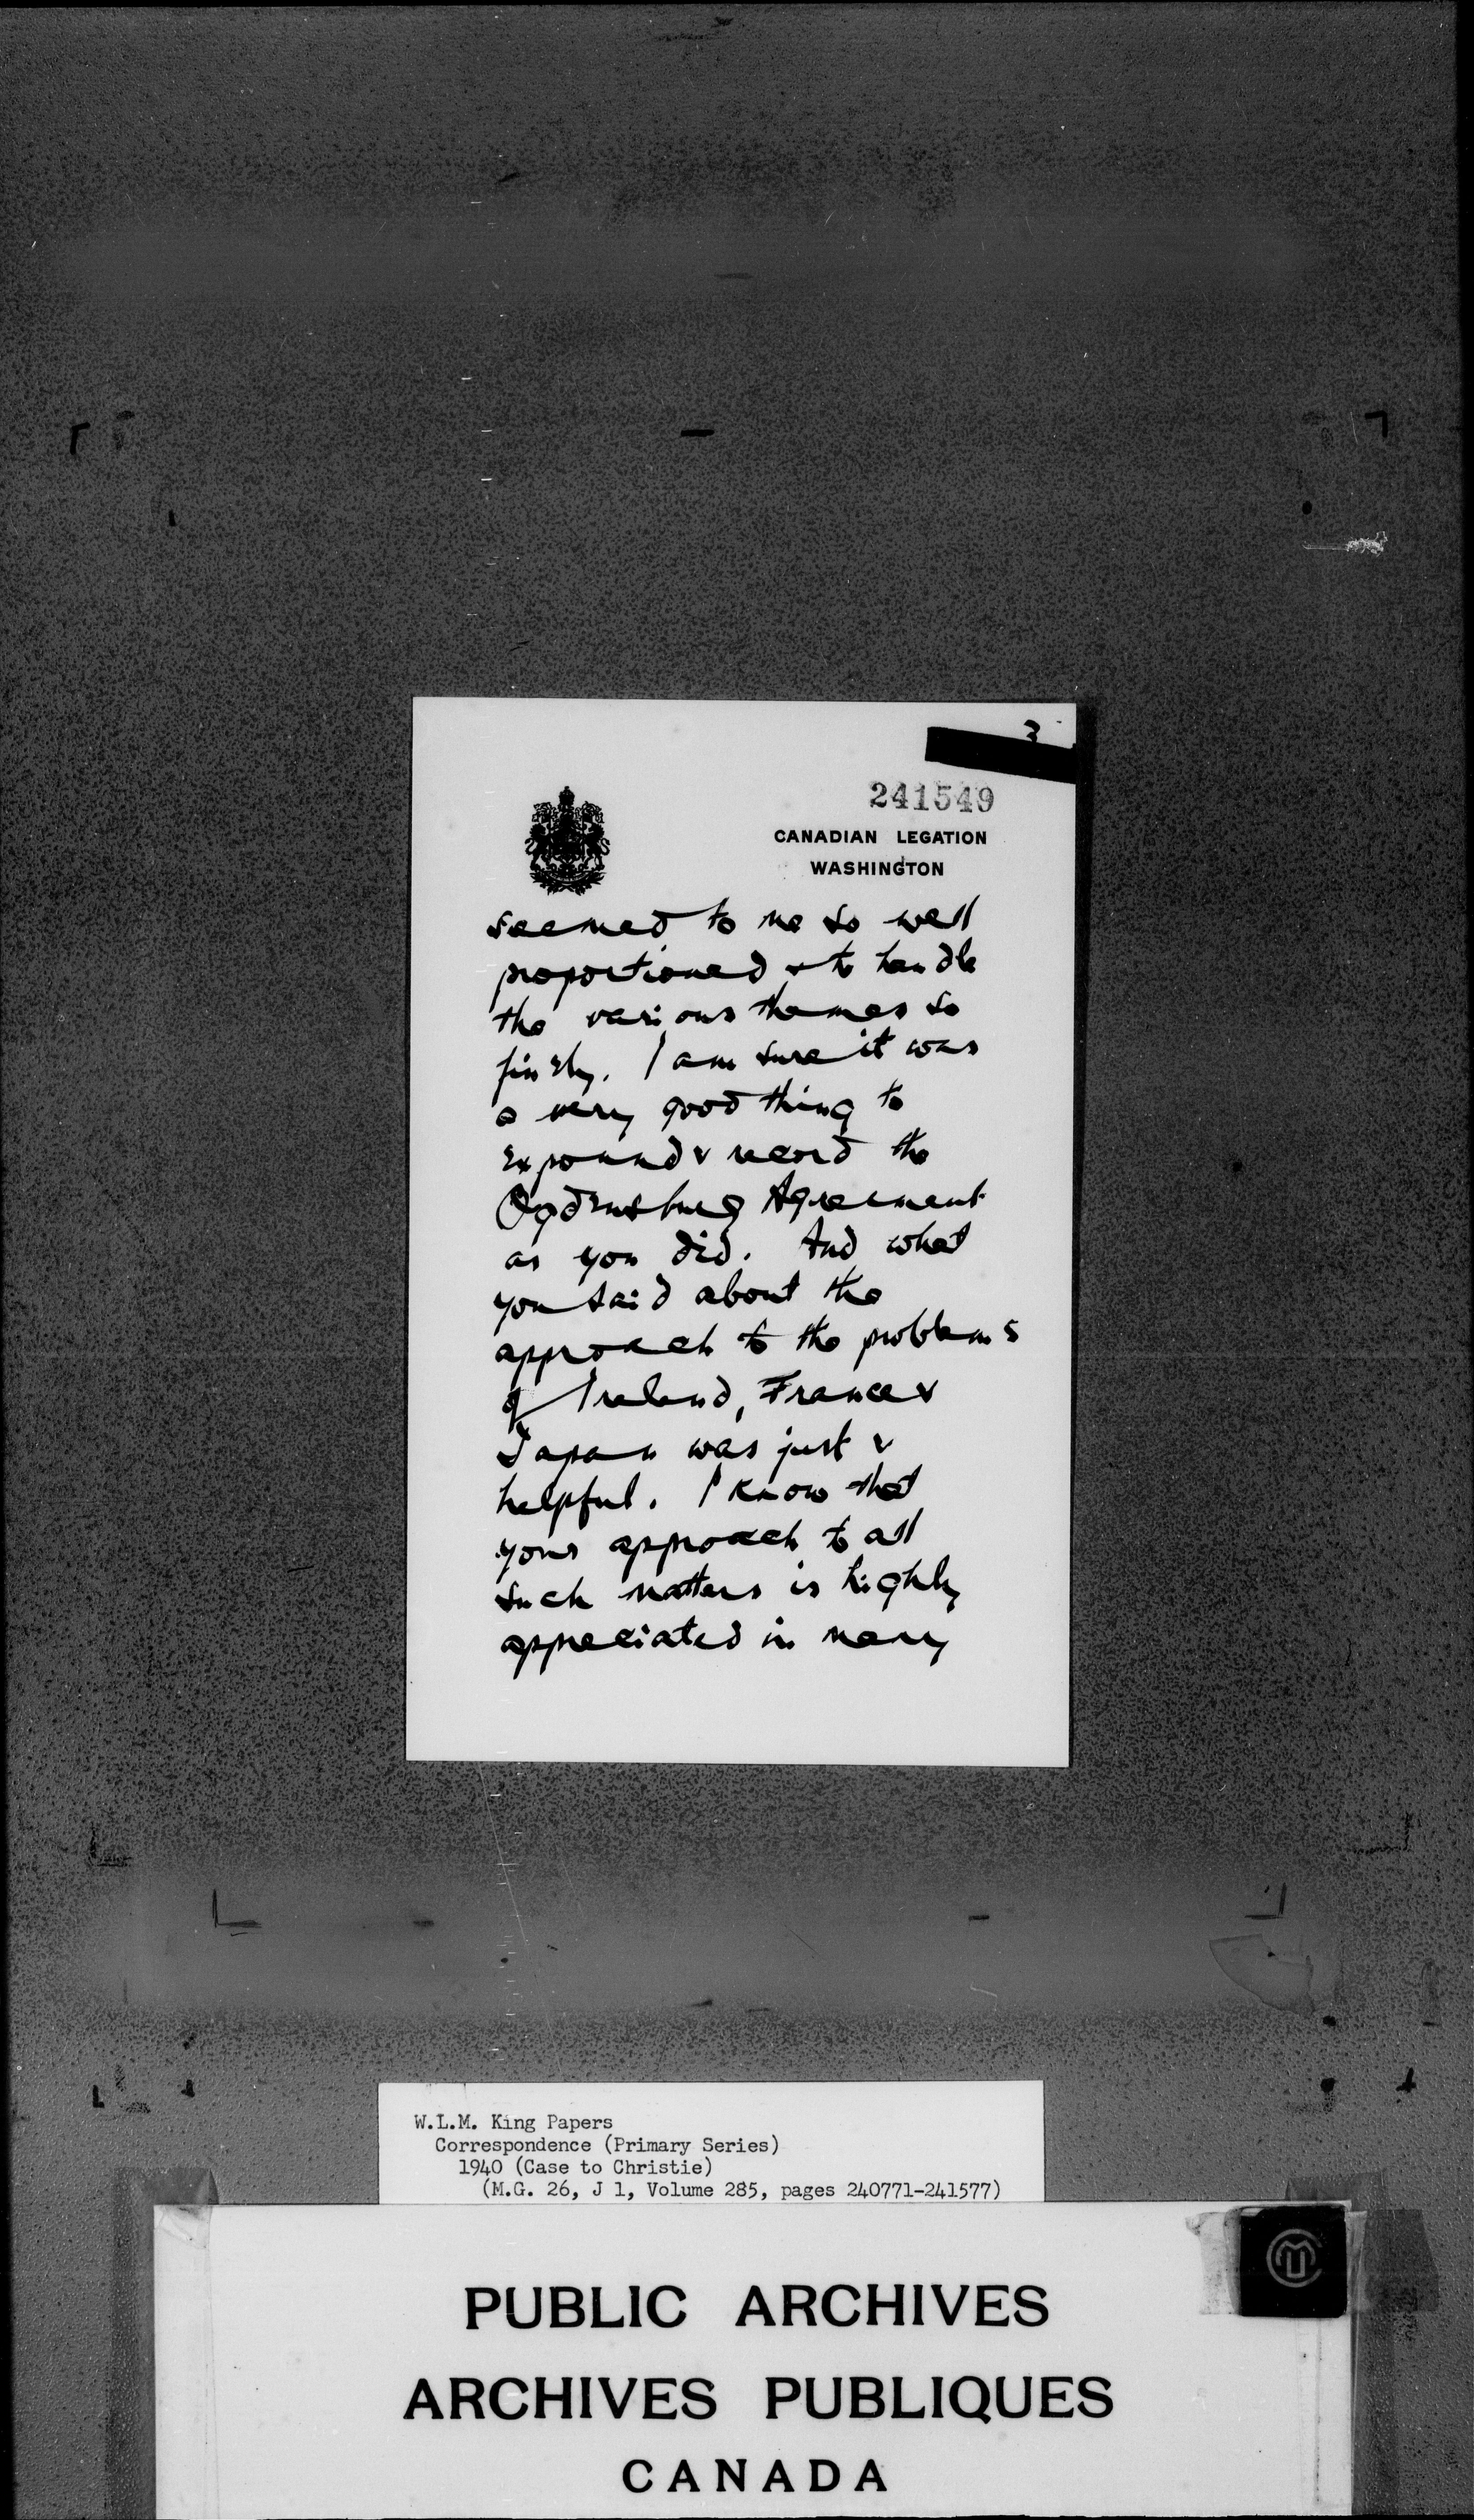 3
241549
CANADIAN LEGATION
WASHINGTON
seemed to me so well
proportioned & to handle
the various themes so
finely. I am sure it was
a very good thing to
expound & record the
Ogdensburg Agreement
as you did. And what
you said about the
approach to the problems
of Ireland, France &
Japan was just &
helpful. I know that
your approach to all
such matters is highly
appreciated in many
W.L.M. King Papers
Correspondence (Primary Series)
1940 (Case to Christie)
(M.G. 26, J 1, Volume 285, pages 240771-241577)
PUBLIC ARCHIVES
ARCHIVES PUBLIQUES
CANADA